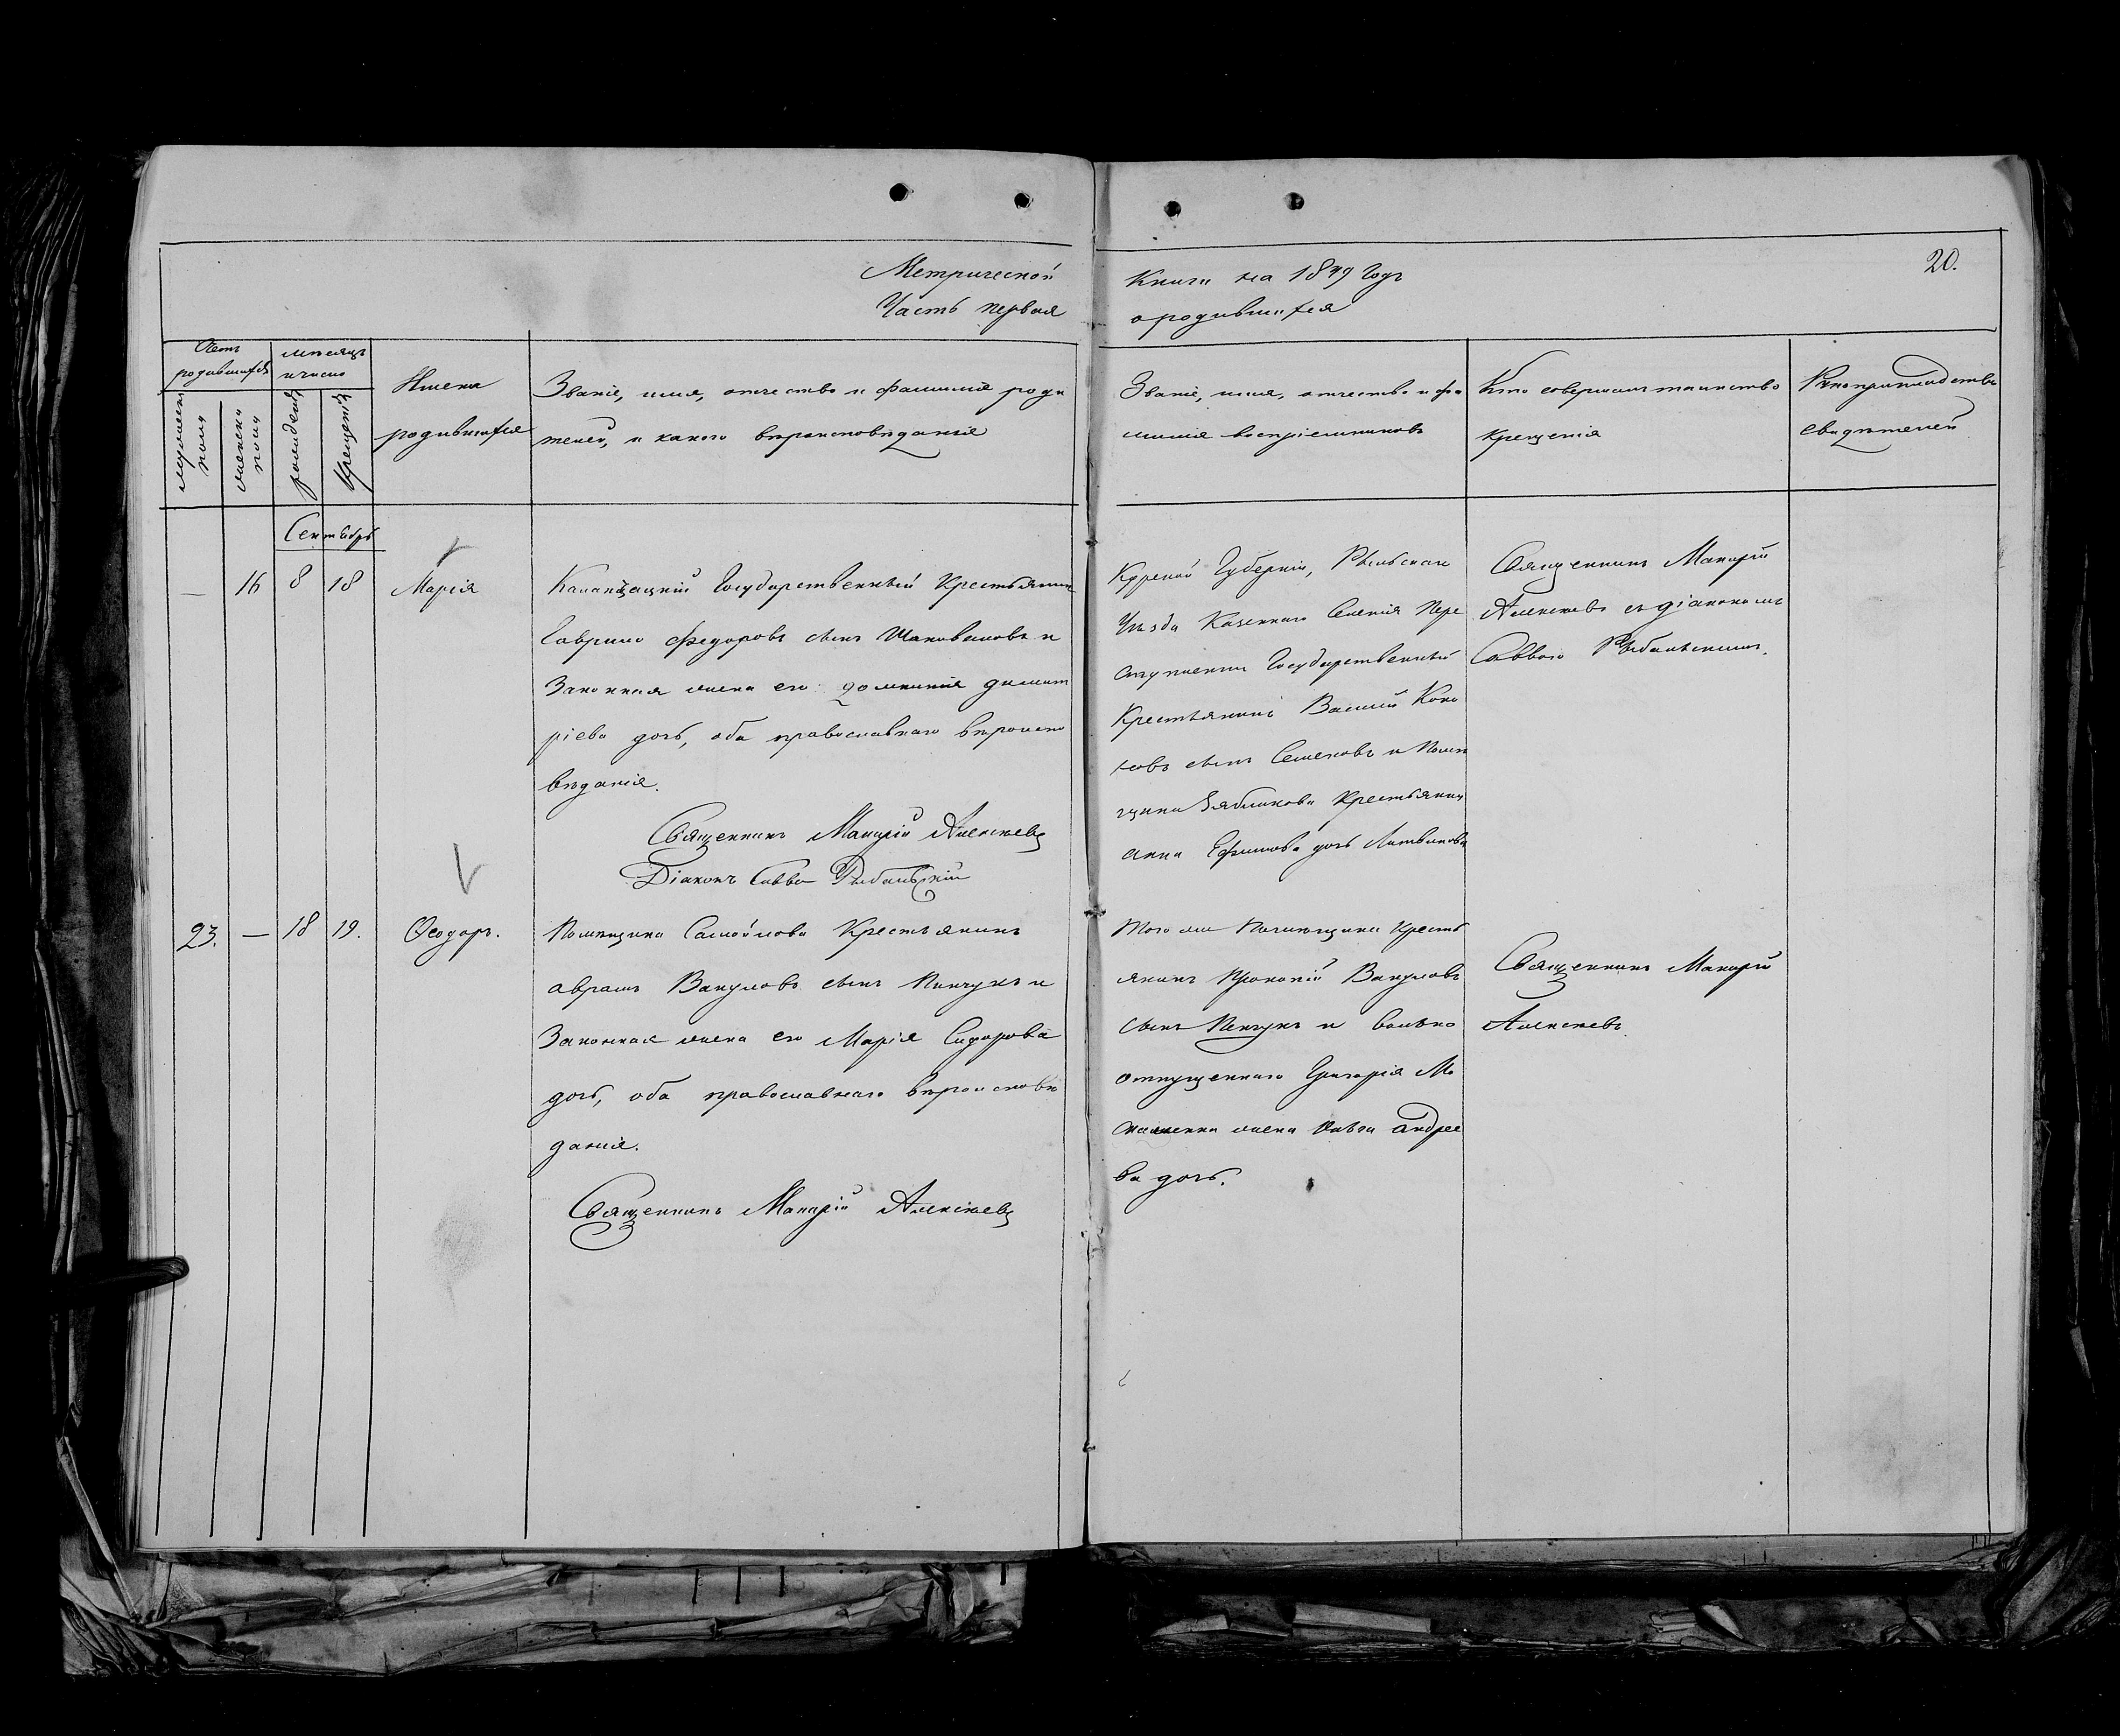 Метрической
Часть первая
Книги на 1849 Годъ
о родившихся
20.
Счетъ родившихся
мужеска пола
женска пола
мѣсяцъ и число
рожденія
крещенія
Имена
родившихся
Званіе, имя, отчество и фамилія роди
телей, и какого вѣроисповѣданія
Званіе, имя, отчество и фа
милія воспріемниковъ
Кто совершалъ таинство
крещенія
Рукоприкладство
свидѣтелей
Сентябрь
— 16 8 18 Марія
Государственный Крестьянинъ
Гаврило Федоровъ сынъ Шаповаловъ и
Законная жена его Домникія Димит
ріева дочь, оба православнаго вѣроиспо
вѣданія.
Священникъ Макарій Алексѣевъ
Діаконъ Савва Рыбальскій
Курской Губерніи, Рыльскаго
Уѣзда Казеннаго Селенія Пере
ступленья Государственный
Крестьянинъ Василій Коно
новъ сынъ Семеновъ и Помѣ
щика Зябликова Крестьянка
анна Ефимова дочь Литвинова
Священникъ Макарій
Алексѣевъ съ діакономъ
Саввою Рыбальскимъ.
23. — 18 19. Ѳеодоръ.
Помѣщика Самойлова Крестьянинъ
аврамъ Вакуловъ сынъ Пинчукъ и
Законная жена его Марія Сидорова
дочь, оба православнаго вѣроисповѣ
данія.
Священникъ Макарій Алексѣевъ
того же Помѣщика Кресть
янинъ Прокопій Вакуловъ
сынъ Пинчукъ и вольно
отпущеннаго Григорія Мо
жена андрее
ва дочь.
Священникъ Макарій
Алексѣевъ.